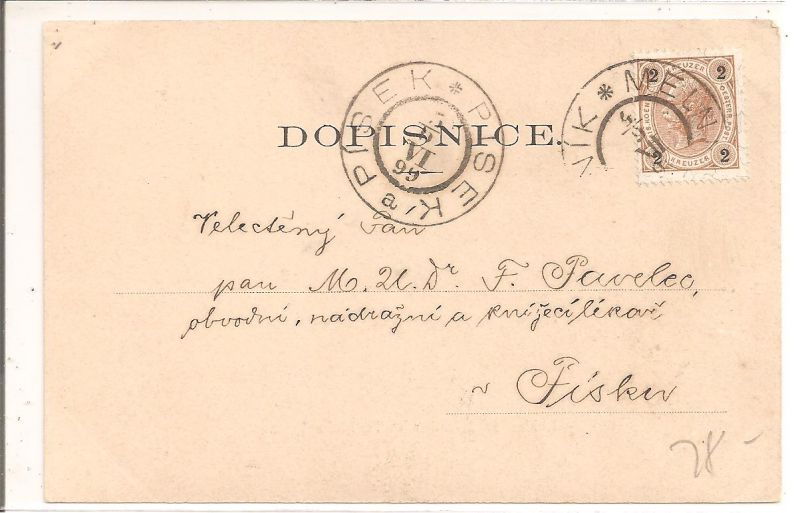 DOPISNICE.
PÍSEK * PISEK * a
5
VI
99
VÍK * MĚLN
2 KREUZER 2
2 KREUZER 2
Velectěný Pan
pan M. U. Dr F. Pavelec,
obvodní, nádražní a knížecí lékař
v Písku
28 -